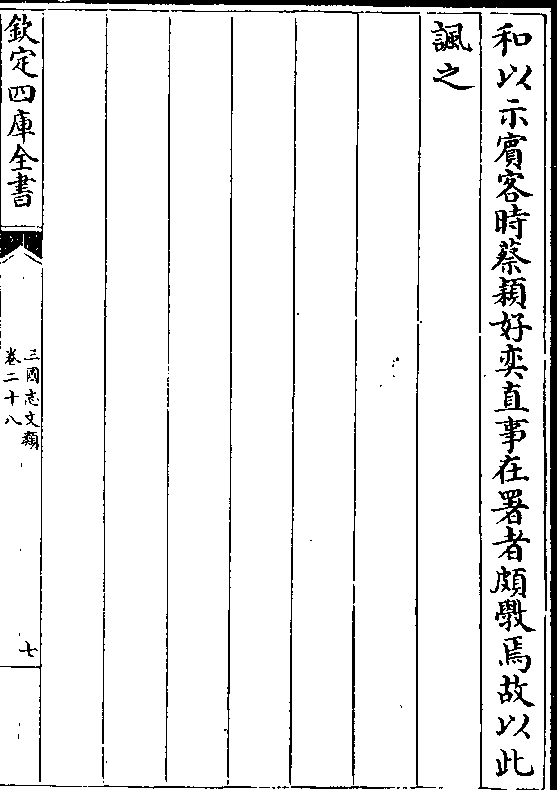 和以示賓客時蔡穎好奕直事在署者頗斆焉故以此
諷之
欽定四庫全書
三國志文類
卷二十八
七